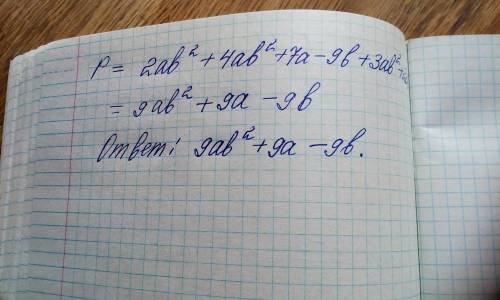 P = 2ab² + 4ab² + 7a - 9b + 3ab² +
= 9ab² + 9a - 9b
Ответ: 9ab² + 9a - 9b.